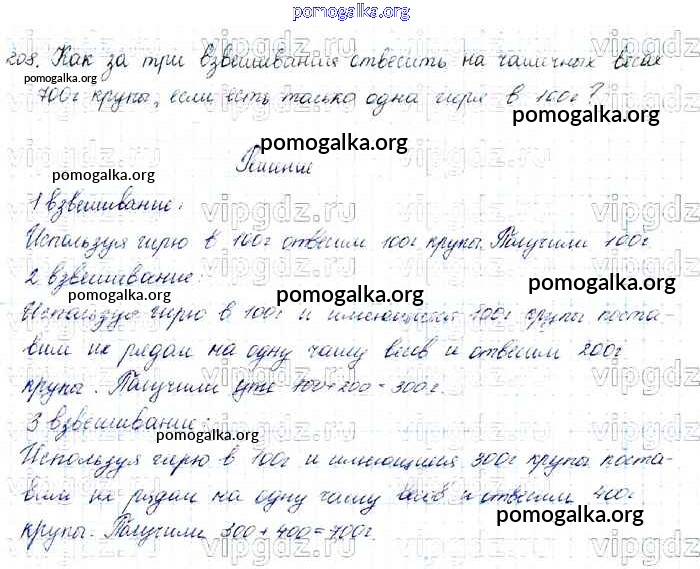 pomogalka.org
208. Как за три взвешивания отвесить на чашечных весах
pomogalka.org
700г крупы, если есть только одна гиря в 100г?
pomogalka.org
pomogalka.org
Решение
pomogalka.org
1 взвешивание:
vipgdz.ru vipgdz.ru vipgdz
Используя гирю в 100г отвесим 100г крупы. Получили 100г
2 взвешивание:
pomogalka.org
pomogalka.org
Используя гирю в 100г и имеющиеся 100г крупы поста-
вим их рядом на одну чашу весов и отвесим 200г
vipgdz.ru vipgdz.ru vipgdz
крупы. Получили уже 100+200=300г.
3 взвешивание:
pomogalka.org
Используя гирю в 100г и имеющиеся 300г крупы поста-
вим их рядом на одну чашу весов и отвесим 400г
pomogalka.org
крупы. Получили 300+400=700г.